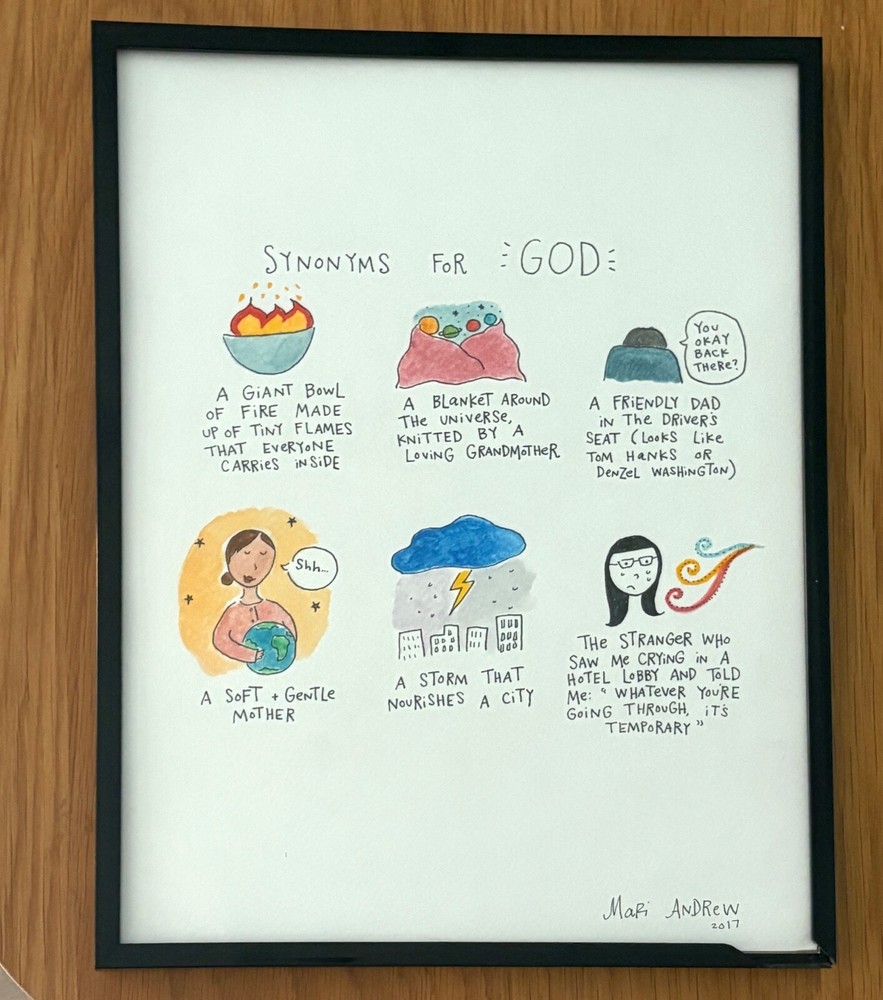 SYNONYMS FOR GOD
A GIANT BOWL
OF FIRE MADE
UP OF TINY FLAMES
THAT EVERYONE
CARRIES INSIDE
A BLANKET AROUND
THE UNIVERSE,
KNITTED BY A
LOVING GRANDMOTHER
YOU
OKAY
BACK
THERE?
A FRIENDLY DAD
IN THE DRIVER'S
SEAT (LOOKS LIKE
TOM HANKS OR
DENZEL WASHINGTON)
Shh...
A SOFT + GENTLE
MOTHER
A STORM THAT
NOURISHES A CITY
THE STRANGER WHO
SAW ME CRYING IN A
HOTEL LOBBY AND TOLD
ME: "WHATEVER YOU'RE
GOING THROUGH, IT'S
TEMPORARY"
MARI ANDREW
2017